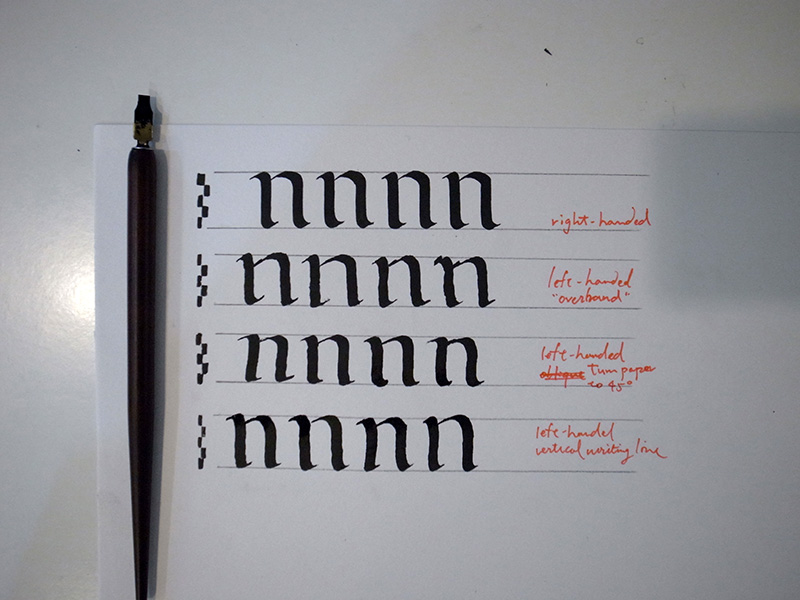 nnnn
right-handed
nnnn
left-handed
"overhand"
nnnn
left-handed
oblique turn paper
to 45°
nnnn
left-handed
vertical writing line